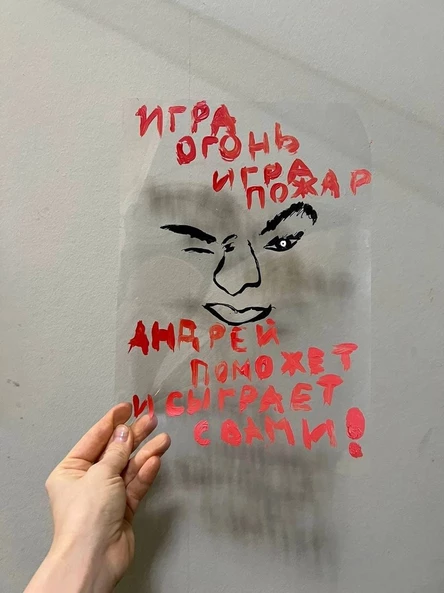 ИГРА
ОГОНЬ
ИГРА
ПОЖАР
АНДРЕЙ
ПОМОЖЕТ
И СЫГРАЕТ
С ВАМИ!